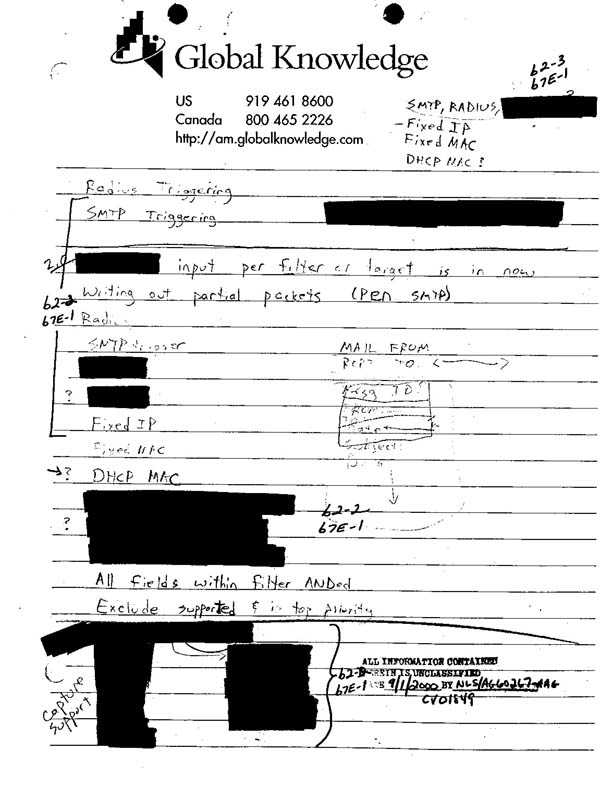 Global Knowledge
US 919 461 8600
Canada 800 465 2226
http://am.globalknowledge.com
b2-3
b7E-1
SMTP, RADIUS,
- Fixed IP
Fixed MAC
DHCP MAC?
Radius Triggering
SMTP Triggering
input per filter or target is in now
b2-2
b7E-1
Writing out partial packets (Pen SMTP)
Radius
SMTP trigger
MAIL FROM
RCPT TO
?
Msg ID?
Fixed IP
Subject
Fixed MAC
→? DHCP MAC
?
b2-2
b7E-1
All fields within filter ANDed
Exclude supported & is top priority
Capture
Support
ALL INFORMATION CONTAINED
HEREIN IS UNCLASSIFIED
9/1/2000 BY
b7E-1